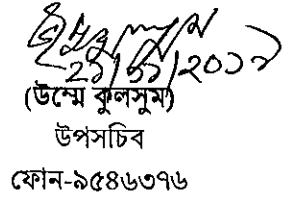 ২১/১১/২০১৭
(উম্মে কুলসুম)
উপসচিব
ফোন-৯৫৪৬৩৭৬